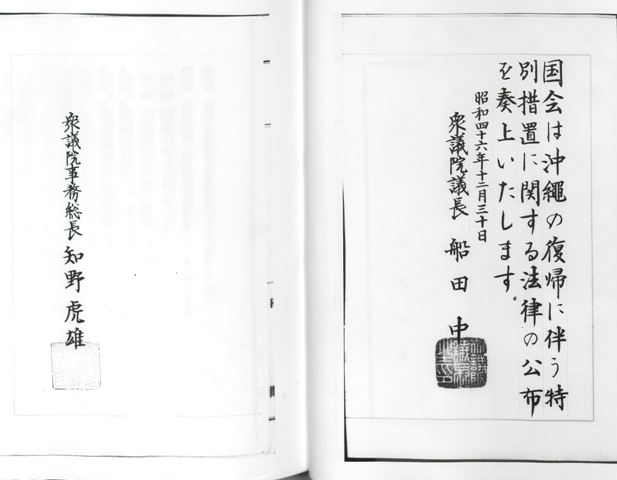 国会は沖繩の復帰に伴う特
別措置に関する法律の公布
を奏上いたします。
昭和四十六年十二月三十日
衆議院議長 船田 中
衆議院事務総長 知野虎雄